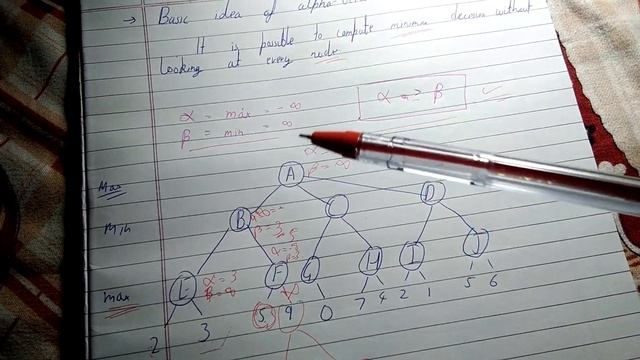 → Basic idea of alpha
It is possible to compute minimax decision without
looking at every node
α = max = -∞
β = min = ∞
α => β
A
β = ∞
Max
B
D
Min
β = 3
α = 3
E
F
G
H
I
J
max
5 9 0 7 4 2 1 5 6
2 3